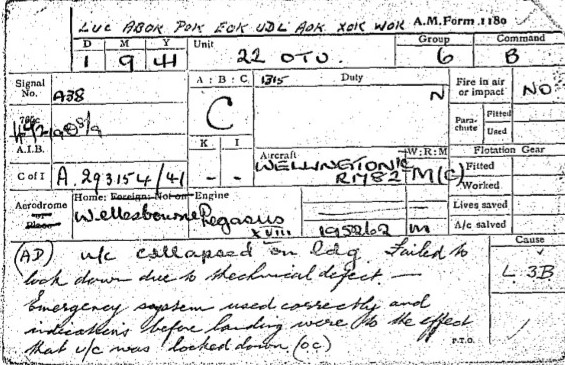 LUC ABOK POK EOK UDL AOK XOK WOK A.M. Form 1180
D M Y Unit Group Command
1 9 41 22 OTU. 6 B
Signal No. A38
A : B : C. 1315 Duty
C N
Fire in air or impact NO
Para-chute Fitted
Used
A.I.B.
K I
- -
Aircraft W : R : M
WELLINGTON IC
R1782 M(C)
Flotation Gear
Fitted
Worked
C of I A. 293154/41
Lives saved
A/c salved
Aerodrome
Home: Foreign: Not on Engine
Wellesbourne Pegasus
XVIII 195262 M
Cause
L. 3B
(AD) u/c collapsed on ldg. Failed to
lock down due to technical defect. —
Emergency system used correctly and
indications before landing were to the effect
that u/c was locked down. (OC)
P.T.O.